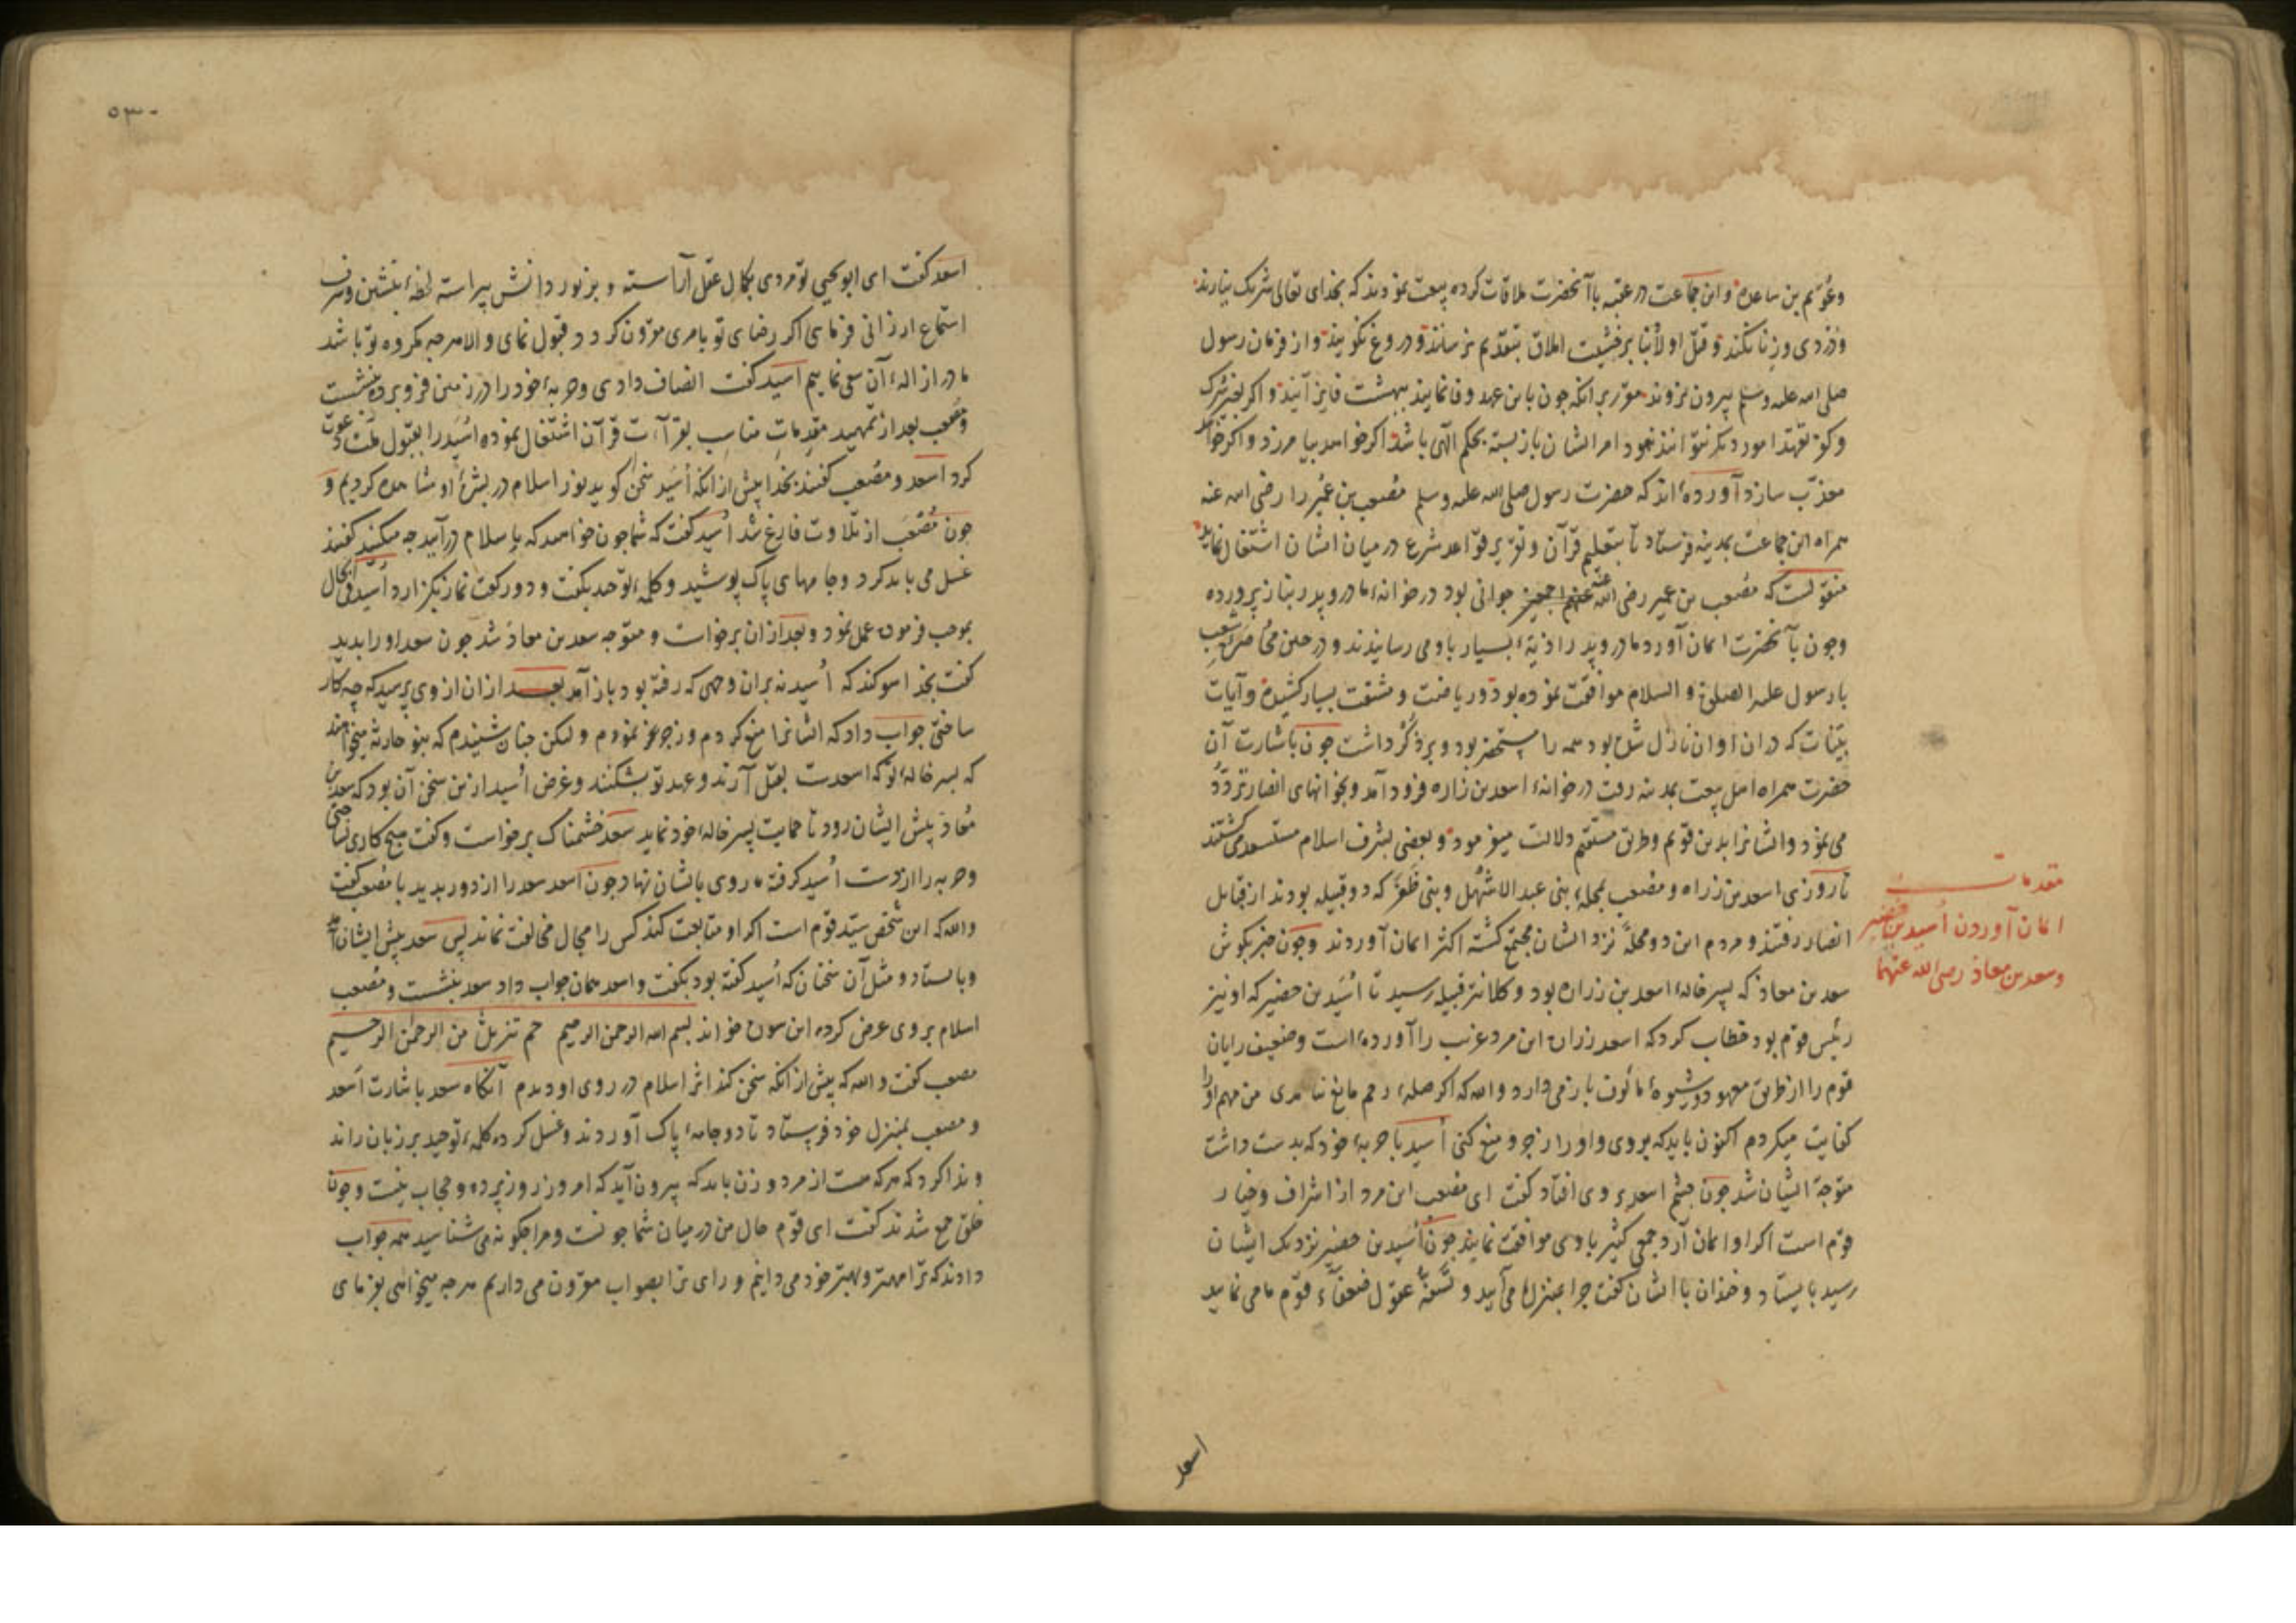 وعُوَیم بن ساعده و این جماعت در عقبه باآنحضرت ملاقات کرده بیعت نمودند که بخدای تعالی شرک نیارند
و دزدی و زنا نکنند و قتل اولاد برخشیت املاق بتقدیم نرسانند و دروغ نکویند و از فرمان رسول
صلی الله علیه وسلم بیرون نروند مقرر برانکه جون باین عهد وفا نمایند ببهشت فایز آیند و اکر بغیر شرک
وکفر تعهد امور دیکر نتوانند نمود امر ایشان بازبسته بحکم الهی باشد اکر خواهد بیامرزد و اکر خواهد
معذب سازد آورده‌اند که حضرت رسول صلی الله علیه وسلم مُصعب بن عُمَیر را رضی الله عنه
همراه این جماعت بمدینه فرستاد تا بتعلیم قرآن و تقریر قواعد شرع درمیان ایشان اشتغال نماید
منقولست که مُصعب بن عمیر رضی الله عنه جوانی بود در خوانهٔ مادر و پدر بناز پرورده
وجون بآنحضرت ایمان آورد مادر و پدر اذیهٔ بسیار باو می رسانیدند و در حین محاصره شعب
با رسول علیه الصلوة و السلام موافقت نموده بود و ریاضت و مشقت بسیار کشیده و آیات
بینات که دران اوان نازل شده بود همه را مستحضر بود و بر ذُکر داشت جون باشارت آن
حضرت همراه اهل بیعت بمدینه رفت در خوانهٔ اسعد بن زاره فرود آمد و بخوانهای انصار تردّد
می نمود و ایشانرا بدین قویم و طریق مستقیم دلالت میفرمود و بعضی بشرف اسلام مستسعد می کشتند
تا روزی اسعد بن زراه و مصعب بمحلهٔ بنی عبد الاشهل و بنی ظفر که دو قبیله بودند از قبایل
مقدمات
انصار رفتند و مردم این دو محله نزد ایشان مجتمع کشته اکثر ایمان آوردند وجون خبر بکوش
ایمان آوردن اُسید بن حضیر
سعد بن معاذ که پسر خالهٔ اسعد بن زراره بود و کلانتر قبیله رسید تا اُسَید بن حضیر که او نیز
وسعد بن معاذ رضی الله عنهما
رئیس قوم بود خطاب کرد که اسعد زراره این مرد غریب را آورده است و ضعیف رایان
قوم را از طریق معهود و شیوهٔ مألوف باز می دارد والله که اکر صلهٔ رحم مانع نیامدی من مهم او را
کفایت میکردم اکنون باید که بروی و او را زجر و منع کنی اُسید با حربهٔ خود که بدست داشت
متوجه ایشان شد جون جشم اسعد بر وی افتاد کفت ای مصعب این مرد از اشراف و خیار
قوم است اکر او ایمان آرد جمعی کثیر با وی موافقت نمایند جون اُسَید بن حضیر نزدیک ایشان
رسید بایستاد و با ایشان کفت جرا بمنزل ما می آیید و تسفیه عقول ضعفاء قوم ما می نمایید
اسعد
٥٣٠
اسعد کفت ای ابو یحیی تو مردی بکمال عقل آراسته و بزیور دانش پیراسته لحظهٔ بنشین و شرف
استماع ارزانی فرمای اکر رضای تو بامری مقرون کردد قبول نمای و الا هرجه مکروه تو باشد
ما در ازالهٔ آن سعی نماییم اسید کفت انصاف دادی و حربهٔ خود را در زمین فرو برده بنشست
ومُصعب بعد از تمهید مقدمات مناسب بقرآءت قرآن اشتغال نموده اُسَید را بقبول ملت دعوت
کرد اسعد و مُصعب کفتند بخدا پیش ازانکه اُسَید سخن کوید نور اسلام در بشرهٔ او مشاهده کردیم و
جون مُصعَب از تلاوت فارغ شد اُسید کفت که شما جون خواهید که باسلام درآیید جه میکنید کفتند
غسل می باید کرد و جامهای پاک پوشید و کلمهٔ توحید بکفت و دو رکعت نماز بکزارد اُسَید فی الحال
بموجب فرموده عمل نمود و بعد ازان برخواست و متوجه سعد بن معاذ شد جون سعد او را بدید
کفت بخدا سوکند که اُسید نه بران وجهی که رفته بود باز آمد بعد ازان از وی پرسید که چه کار
ساختی جواب داد که ایشانرا منع کردم و زجر نمودم و لیکن جنان شنیدم که بنو حارثه میخواهند
که پسر خالهٔ تو که اسعدست بقتل آرند و عهد تو بشکنند و غرض اُسید ازین سخن آن بود که سعد بن
مُعاذ پیش ایشان رود تا حمایت پسر خالهٔ خود نماید سعد خشمناک برخواست و کفت هیچ کاری نساختی
و حربه را از دست اُسید کرفته روی بایشان نهاد جون اسعد سعد را از دور بدید با مُصعب کفت
والله که این شخص سیّد قوم است اکر او متابعت کند کس را مجال مخالفت نماند پس سعد پیش ایشان آمد
و بایستاد و مثل آن سخنان که اُسید کفته بود بکفت و اسعد همان جواب داد سعد بنشست و مُصعب
اسلام بروی عرض کرده این سوره خواند بسم الله الرحمن الرحیم حم تنزیلٌ من الرحمٰن الرحیم
مصعب کفت والله که پیش ازانکه سخن کند اثر اسلام در روی او دیدم آنکاه سعد باشارت اَسعد
و مصعب بمنزل خود فرستاد تا دو جامهٔ پاک آوردند و غسل کرده کلمهٔ توحید بر زبان راند
و ندا کرد که هرکه هست از مرد و زن باید که بیرون آید که امروز روز پرده و حجاب نیست وجون
خلق جمع شدند کفت ای قوم حال من درمیان شما جونست و مرا جکونه می شناسید همه جواب
دادند که ترا مهتر و بهتر خود می دانیم و رای ترا بصواب مقرون می داریم هرجه میخواهی بفرمای